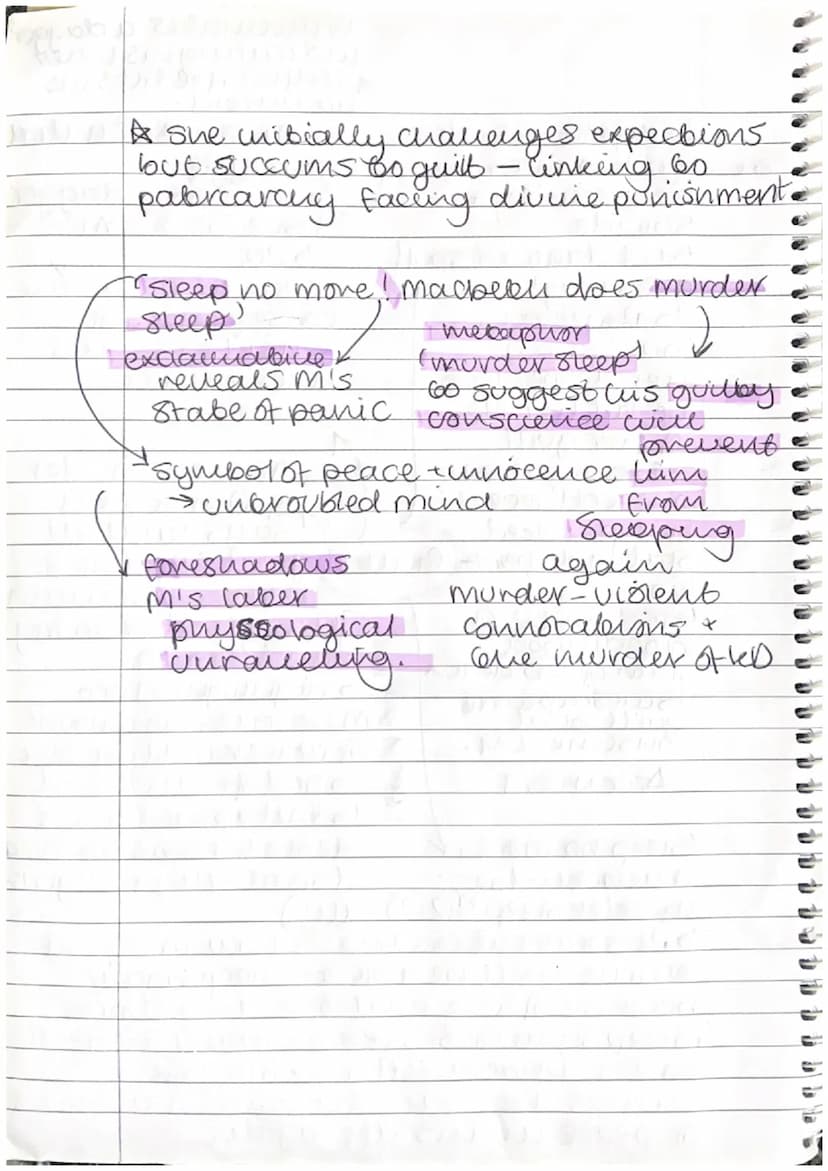 ☆ She initially challenges expections
but succums to guilt – linking to
patrcarchy facing divine punishment
'Sleep no more! Macbeth does murder
sleep'
exclamative
reveals M's
state of panic
metaphor
(murder sleep)
to suggest his guilty
conscience will
prevent
him
from
sleeping
again
murder – violent
connotations +
the murder of KD
symbol of peace + innocence
→ untroubled mind
foreshadows
M's later
physcological
unraveling.